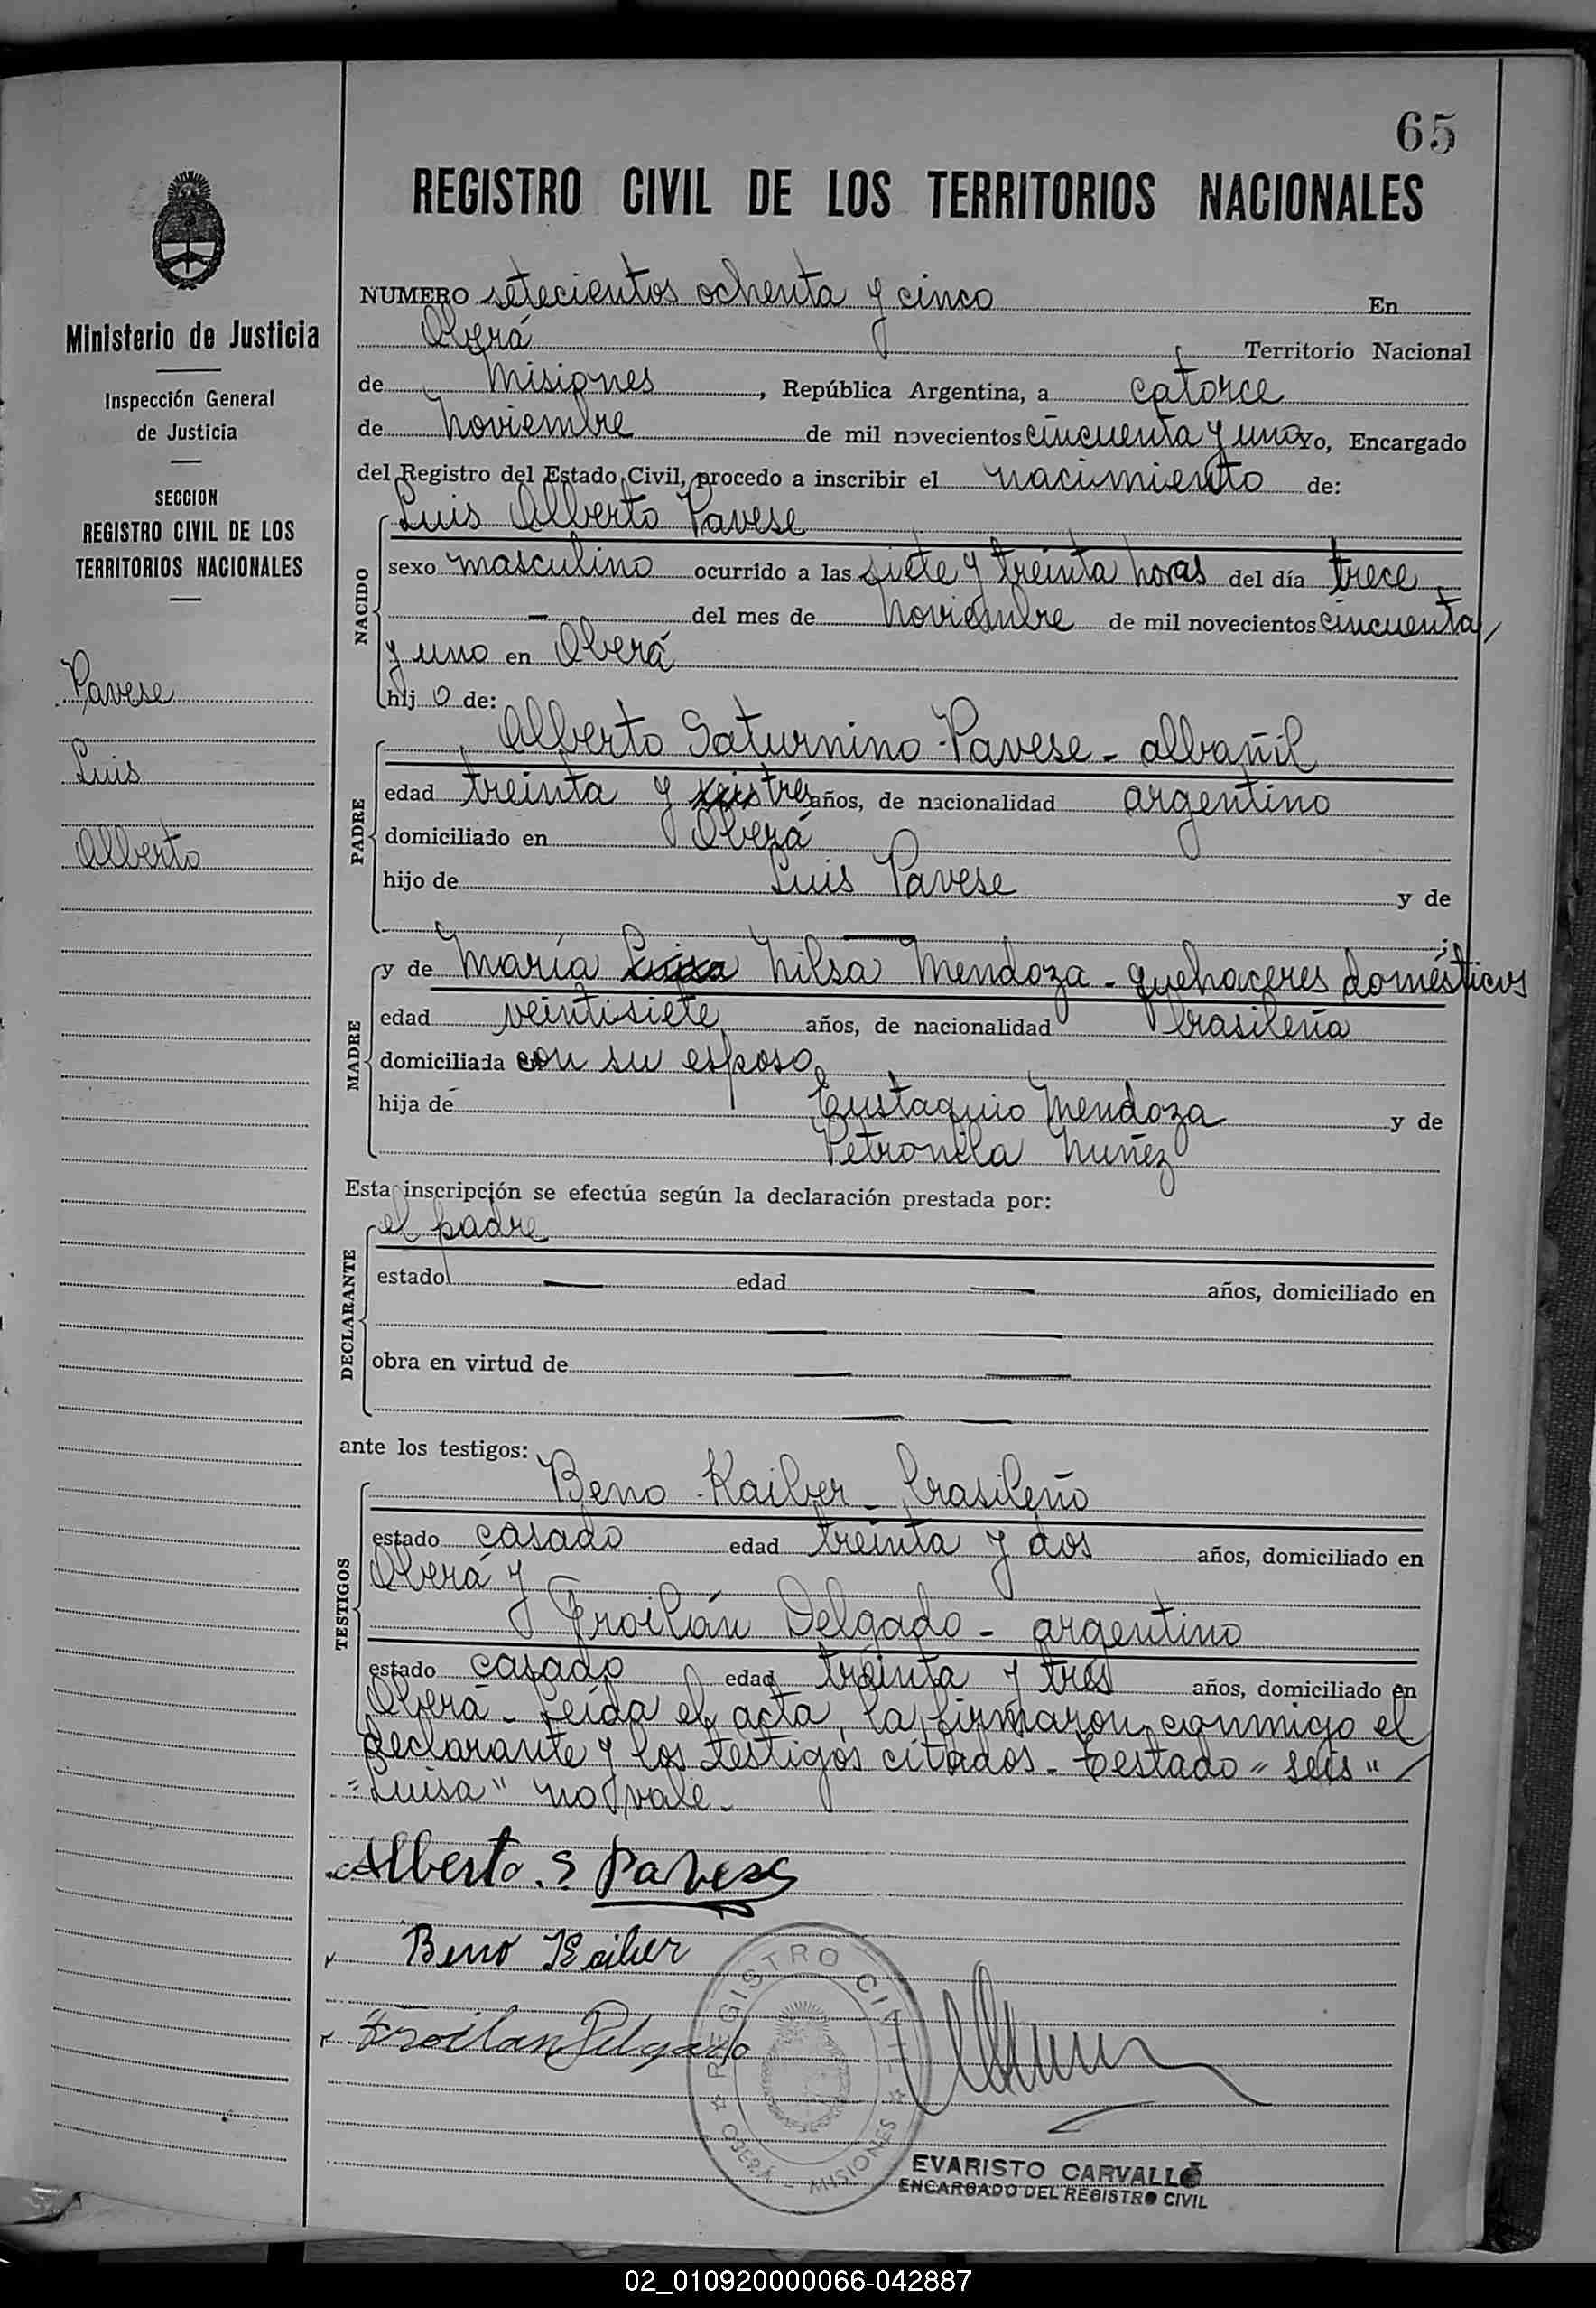 65
REGISTRO CIVIL DE LOS TERRITORIOS NACIONALES
Ministerio de Justicia
Inspección General
de Justicia
SECCION
REGISTRO CIVIL DE LOS
TERRITORIOS NACIONALES
Pavese
Luis
Alberto
NUMERO setecientos ochenta y cinco En
Oberá Territorio Nacional
de Misiones, República Argentina, a catorce
de noviembre de mil novecientos cincuenta y uno Yo, Encargado
del Registro del Estado Civil, procedo a inscribir el nacimiento de:
NACIDO
Luis Alberto Pavese
sexo masculino ocurrido a las siete y treinta horas del día trece
— del mes de noviembre de mil novecientos cincuenta
y uno en Oberá
hij o de:
PADRE
Alberto Saturnino Pavese - albañil
edad treinta y seis tres años, de nacionalidad argentino
domiciliado en Oberá
hijo de Luis Pavese y de
— ;
MADRE
y de María Luisa Nilsa Mendoza - quehaceres domésticos
edad veintisiete años, de nacionalidad brasileña
domiciliada con su esposo
hija de Eustaquio Mendoza y de
Petronila Nuñez
Esta inscripción se efectúa según la declaración prestada por:
DECLARANTE
el padre
estado — edad — años, domiciliado en
— —
obra en virtud de — —
— —
ante los testigos:
TESTIGOS
Beno Kaiber - brasileño
estado casado edad treinta y dos años, domiciliado en
Oberá y
Froilán Delgado - argentino
estado casado edad treinta y tres años, domiciliado en
Oberá - Leída el acta, la firmaron conmigo el
declarante y los testigos citados - Testado "seis"
"Luisa" no vale -
Alberto. S Pavese
Beno Kaiber
Froilan Delgado
REGISTRO CIVIL
OBERÁ - MISIONES
EVARISTO CARVALLO
ENCARGADO DEL REGISTRO CIVIL
02_010920000066-042887